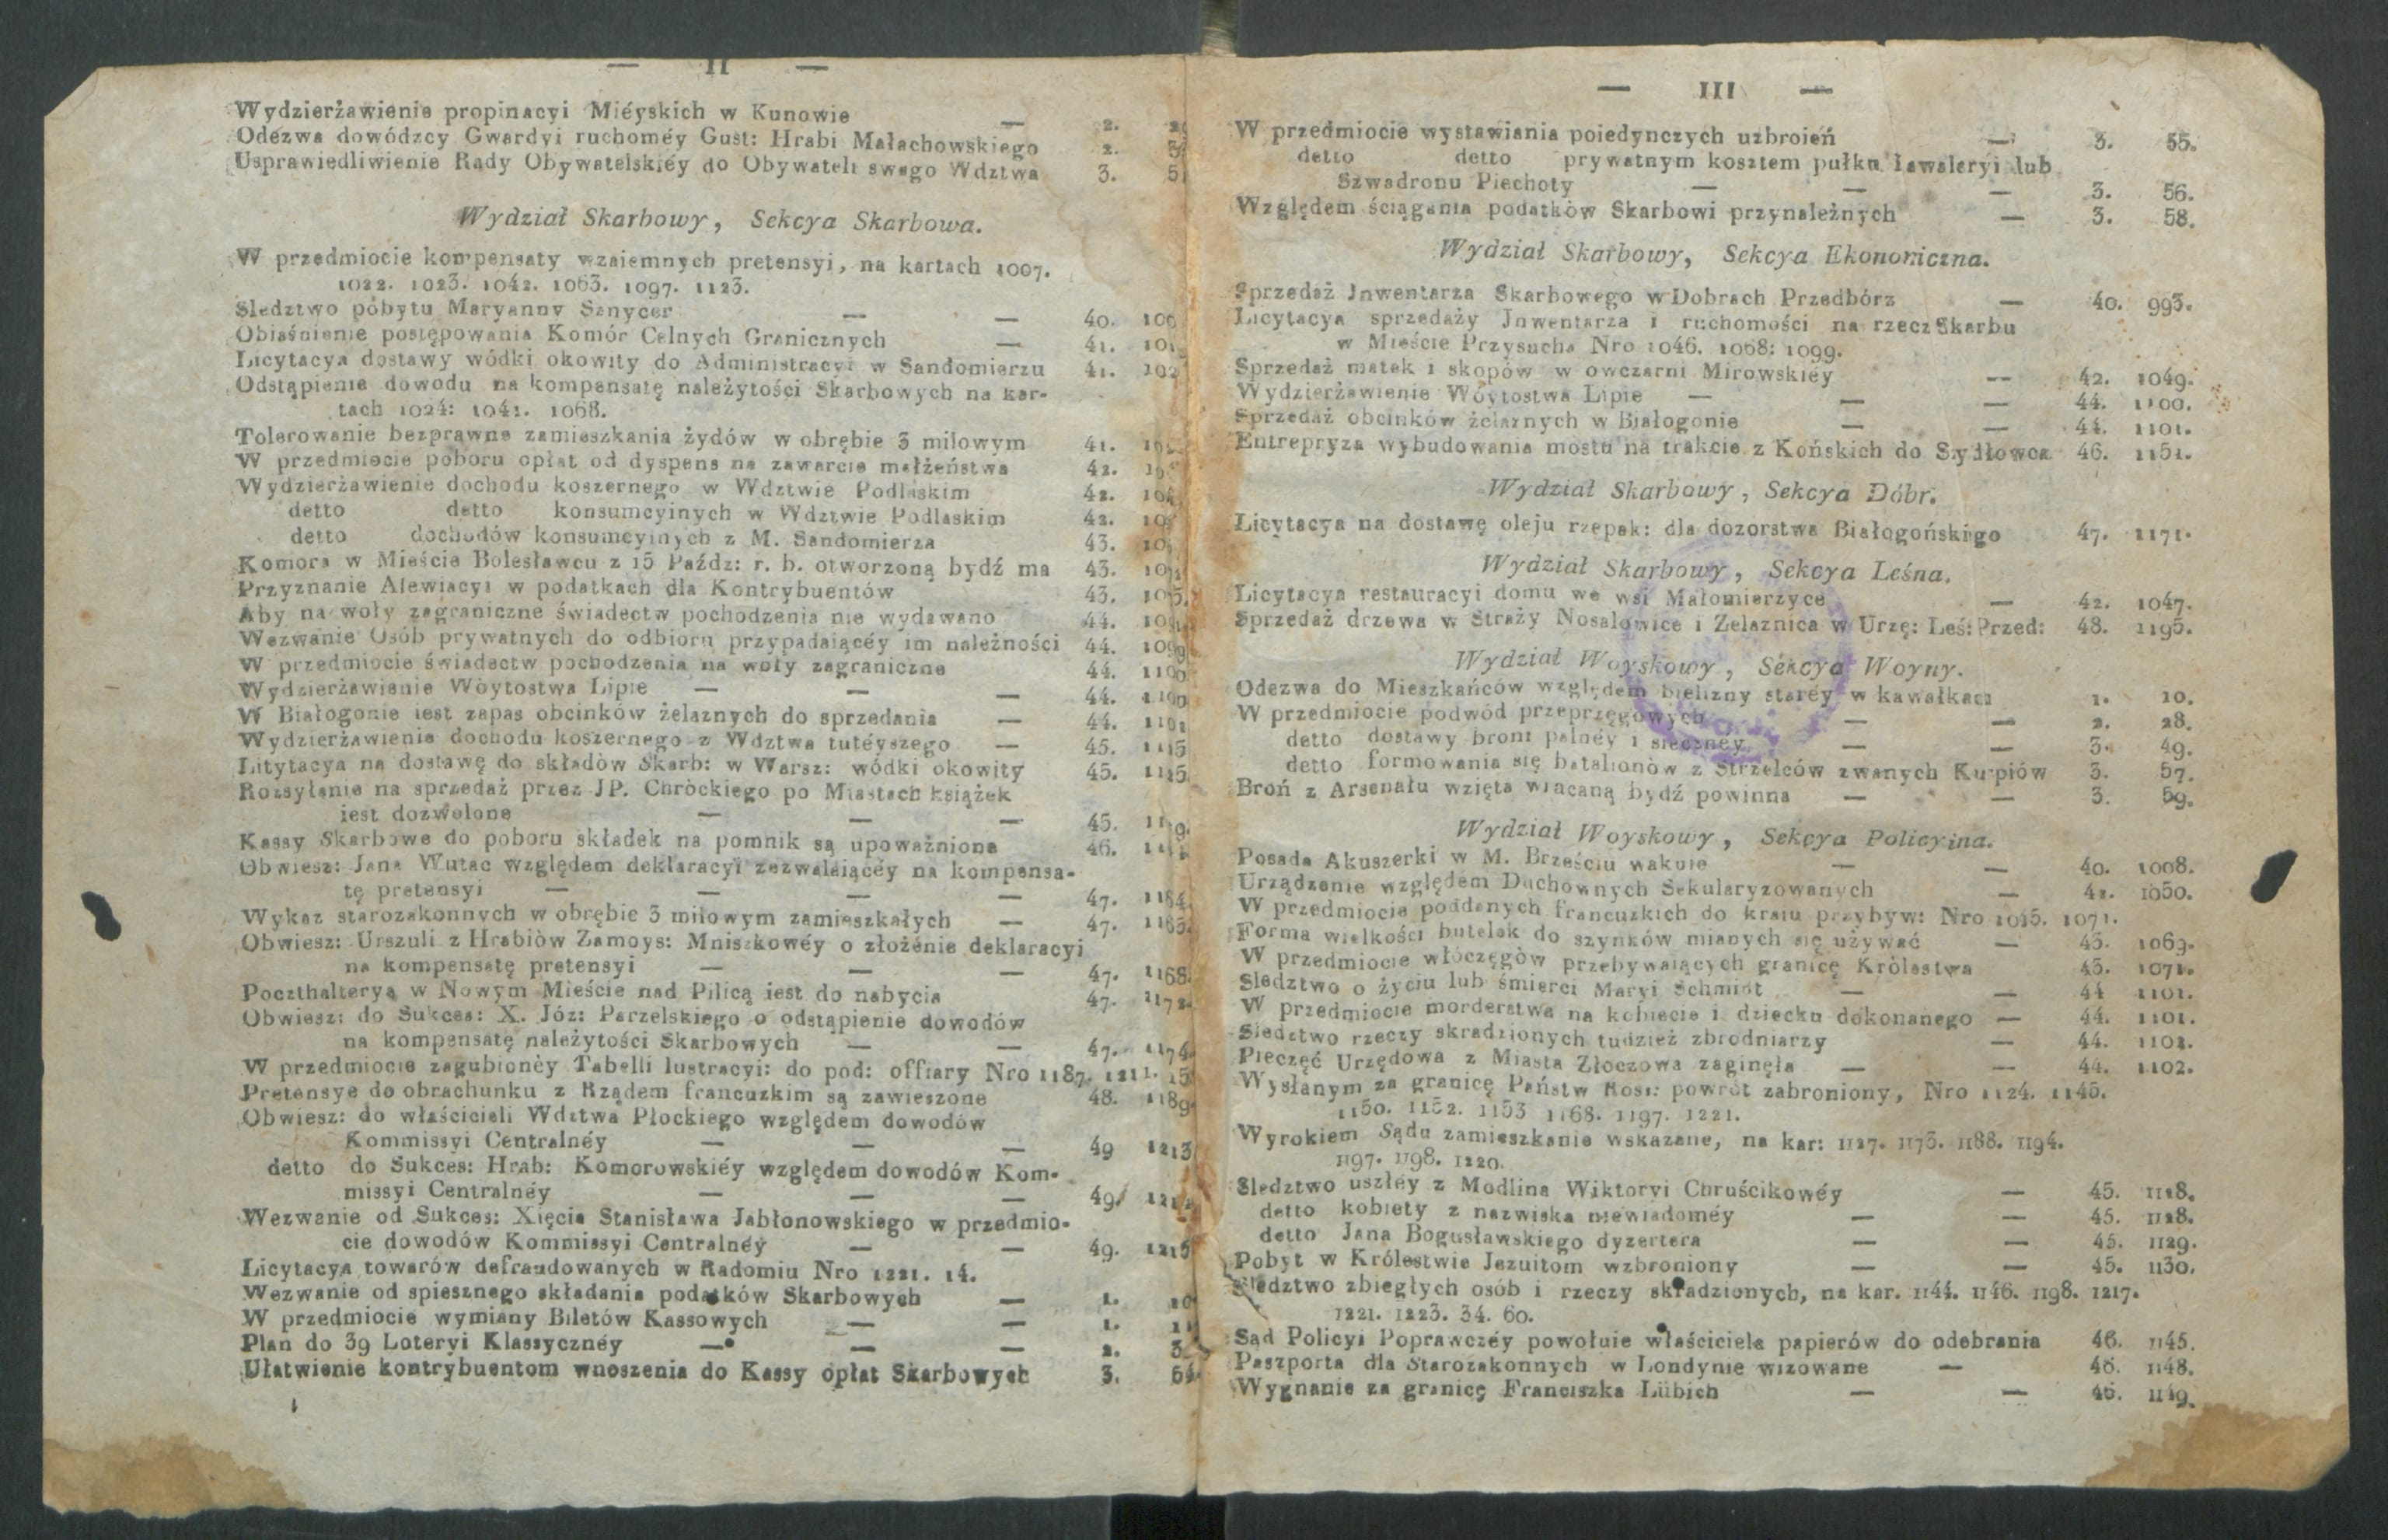 — II —
Wydzierżawienie propinacyi Miéyskich w Kunowie — 2.
Odezwa dowódzcy Gwardyi ruchoméy Gust: Hrabi Małachowskiego 2.
Usprawiedliwienie Rady Obywatelskiéy do Obywateli swego Wdztwa 3.
Wydział Skarbowy, Sekcya Skarbowa.
W przedmiocie kompensaty wzaiemnych pretensyi, na kartach 1007.
1022. 1023. 1042. 1063. 1097. 1123.
Sledztwo pobytu Maryanny Sznycer — — 40.
Obiaśnienie postępowania Komór Celnych Granicznych — 41.
Licytacya dostawy wódki okowity do Administracyi w Sandomierzu 41.
Odstąpienie dowodu na kompensatę należytości Skarbowych na kar-
tach 1024: 1041. 1068.
Tolerowanie bezprawne zamieszkania żydów w obrębie 3 milowym 41.
W przedmiocie poboru opłat od dyspens na zawarcie małżeństwa 42.
Wydzierżawienie dochodu koszernego w Wdztwie Podlaskim 42.
detto detto konsumcyinych w Wdztwie Podlaskim 42.
detto dochodów konsumcyinych z M. Sandomierza 43.
Komora w Mieście Bolesławcu z 15 Paźdz: r. b. otworzoną bydź ma 43.
Przyznanie Alewiacyi w podatkach dla Kontrybuentów 43.
Aby na woły zagraniczne świadectw pochodzenia nie wydawano 44.
Wezwanie Osób prywatnych do odbioru przypadaiącéy im należności 44. 1099
W przedmiocie świadectw pochodzenia na woły zagraniczne 44. 1100
Wydzierżawienie Wóytostwa Lipie — — — 44. 1100
W Białogonie iest zapas obcinków żelaznych do sprzedania — 44. 1101
Wydzierżawienie dochodu koszernego z Wdztwa tutéyszego — 45. 1115
Litytacya na dostawę do składów Skarb: w Warsz: wódki okowity 45. 1125.
Rozsyłanie na sprzedaż przez JP. Chróckiego po Miastach książek
iest dozwolone — — — 45.
Kassy Skarbowe do poboru składek na pomnik są upoważnione 46.
Obwiesz: Jana Wutac względem deklaracyi zezwalaiącéy na kompensa-
tę pretensyi — — — — 47. 1164
Wykaz starozakonnych w obrębie 3 milowym zamieszkałych — 47. 1165.
Obwiesz: Urszuli z Hrabiów Zamoys: Mniszkowéy o złożenie deklaracyi
na kompensatę pretensyi — — — 47. 1168.
Poczthalterya w Nowym Mieście nad Pilicą iest do nabycia 47. 1172.
Obwiesz: do Sukces: X. Józ: Parzelskiego o odstąpienie dowodów
na kompensatę należytości Skarbowych — — 47. 1174
W przedmiocie zagubionéy Tabelli lustracyi: do pod: offiary Nro 1187. 1211. 15
Pretensye do obrachunku z Rządem francuzkim są zawieszone 48. 1189.
Obwiesz: do właścicieli Wdztwa Płockiego względem dowodów
Kommissyi Centralnéy — — — 49 1213
detto do Sukces: Hrab: Komorowskiéy względem dowodów Kom-
missyi Centralnéy — — — 49.
Wezwanie od Sukces: Xięcia Stanisława Jabłonowskiego w przedmio-
cie dowodów Kommissyi Centralnéy — — 49. 1215
Licytacya towarów defraudowanych w Radomiu Nro 1221. 14.
Wezwanie od spiesznego składania podatków Skarbowych — 1. 10
W przedmiocie wymiany Biletów Kassowych — — 1. 11
Plan do 39 Loteryi Klassycznéy — — — 2.
Ułatwienie kontrybuentom wnoszenia do Kassy opłat Skarbowych 3. 54
— III —
W przedmiocie wystawiania poiedynczych uzbroień — 3. 55.
detto detto prywatnym kosztem pułku kawaleryi lub
Szwadronu Piechoty — — — 3. 56.
Względem ściągania podatków Skarbowi przynależnych — 3. 58.
Wydział Skarbowy, Sekcya Ekonomiczna.
Sprzedaż Jnwentarza Skarbowego w Dobrach Przedbórz — 40. 993.
Licytacya sprzedaży Jnwentarza i ruchomości na rzecz Skarbu
w Mieście Przysucha Nro 1046. 1068: 1099.
Sprzedaż matek i skopów w owczarni Mirowskiéy — 42. 1049.
Wydzierżawienie Wóytostwa Lipie — — — 44. 1100.
Sprzedaż obcinków żelaznych w Białogonie — — 44. 1101.
Entrepryza wybudowania mostu na trakcie z Końskich do Szydłowca 46. 1151.
Wydział Skarbowy, Sekcya Dóbr.
Licytacya na dostawę oleju rzepak: dla dozorstwa Białogońskigo 47. 1171.
Wydział Skarbowy, Sekcya Leśna.
Licytacya restauracyi domu we wsi Małomierzyce — 42. 1047.
Sprzedaż drzewa w Straży Nosalowice i Zelaznica w Urzę: Leś: Przed: 48. 1195.
Wydział Woyskowy, Sekcya Woyny.
Odezwa do Mieszkańców względem bielizny staréy w kawałkach 1. 10.
W przedmiocie podwód przeprzęgowych — — 2. 28.
detto dostawy broni palnéy i sieczney — — 3. 49.
detto formowania się batalionów z Strzelców zwanych Kurpiów 3. 57.
Broń z Arsenału wzięta wracaną bydź powinna — — 3. 59.
Wydział Woyskowy, Sekcya Policyina.
Posada Akuszerki w M. Brześciu wakuie — — 40. 1008.
Urządzenie względem Duchownych Sekularyzowanych — 42. 1050.
W przedmiocie poddanych francuzkich do kraiu przybyw: Nro 1045. 1071.
Forma wielkości butelek do szynków mianych się używać — 43. 1069.
W przedmiocie włóczęgów przebywaiących granicę Królestwa 43. 1071.
Sledztwo o życiu lub śmierci Maryi Schmidt — — 44 1101.
W przedmiocie morderstwa na kobiecie i dziecku dokonanego — 44. 1101.
Sledztwo rzeczy skradzionych tudzież zbrodniarzy — 44. 1102.
Pieczęć Urzędowa z Miasta Złoczowa zaginęła — — 44. 1102.
Wysłanym za granicę Państw Ross: powrót zabroniony, Nro 1124. 1145.
1150. 1152. 1153 1168. 1197. 1221.
Wyrokiem Sądu zamieszkanie wskazane, na kar: 1127. 1173. 1188. 1194.
1197. 1198. 1220.
Sledztwo uszłéy z Modlina Wiktoryi Chruścikowéy — 45. 1128.
detto kobiety z nazwiska niewiadoméy — — 45. 1128.
detto Jana Bogusławskiego dyzertera — — 45. 1129.
Pobyt w Królestwie Jezuitom wzbroniony — — 45. 1130.
Sledztwo zbiegłych osób i rzeczy skradzionych, na kar. 1144. 1146. 1198. 1217.
1221. 1223. 34. 60.
Sąd Policyi Poprawczéy powołuie właściciela papierów do odebrania 46. 1145.
Paszporta dla Starozakonnych w Londynie wizowane — 46. 1148.
Wygnanie za granicę Franciszka Lübich — — 46. 1149.